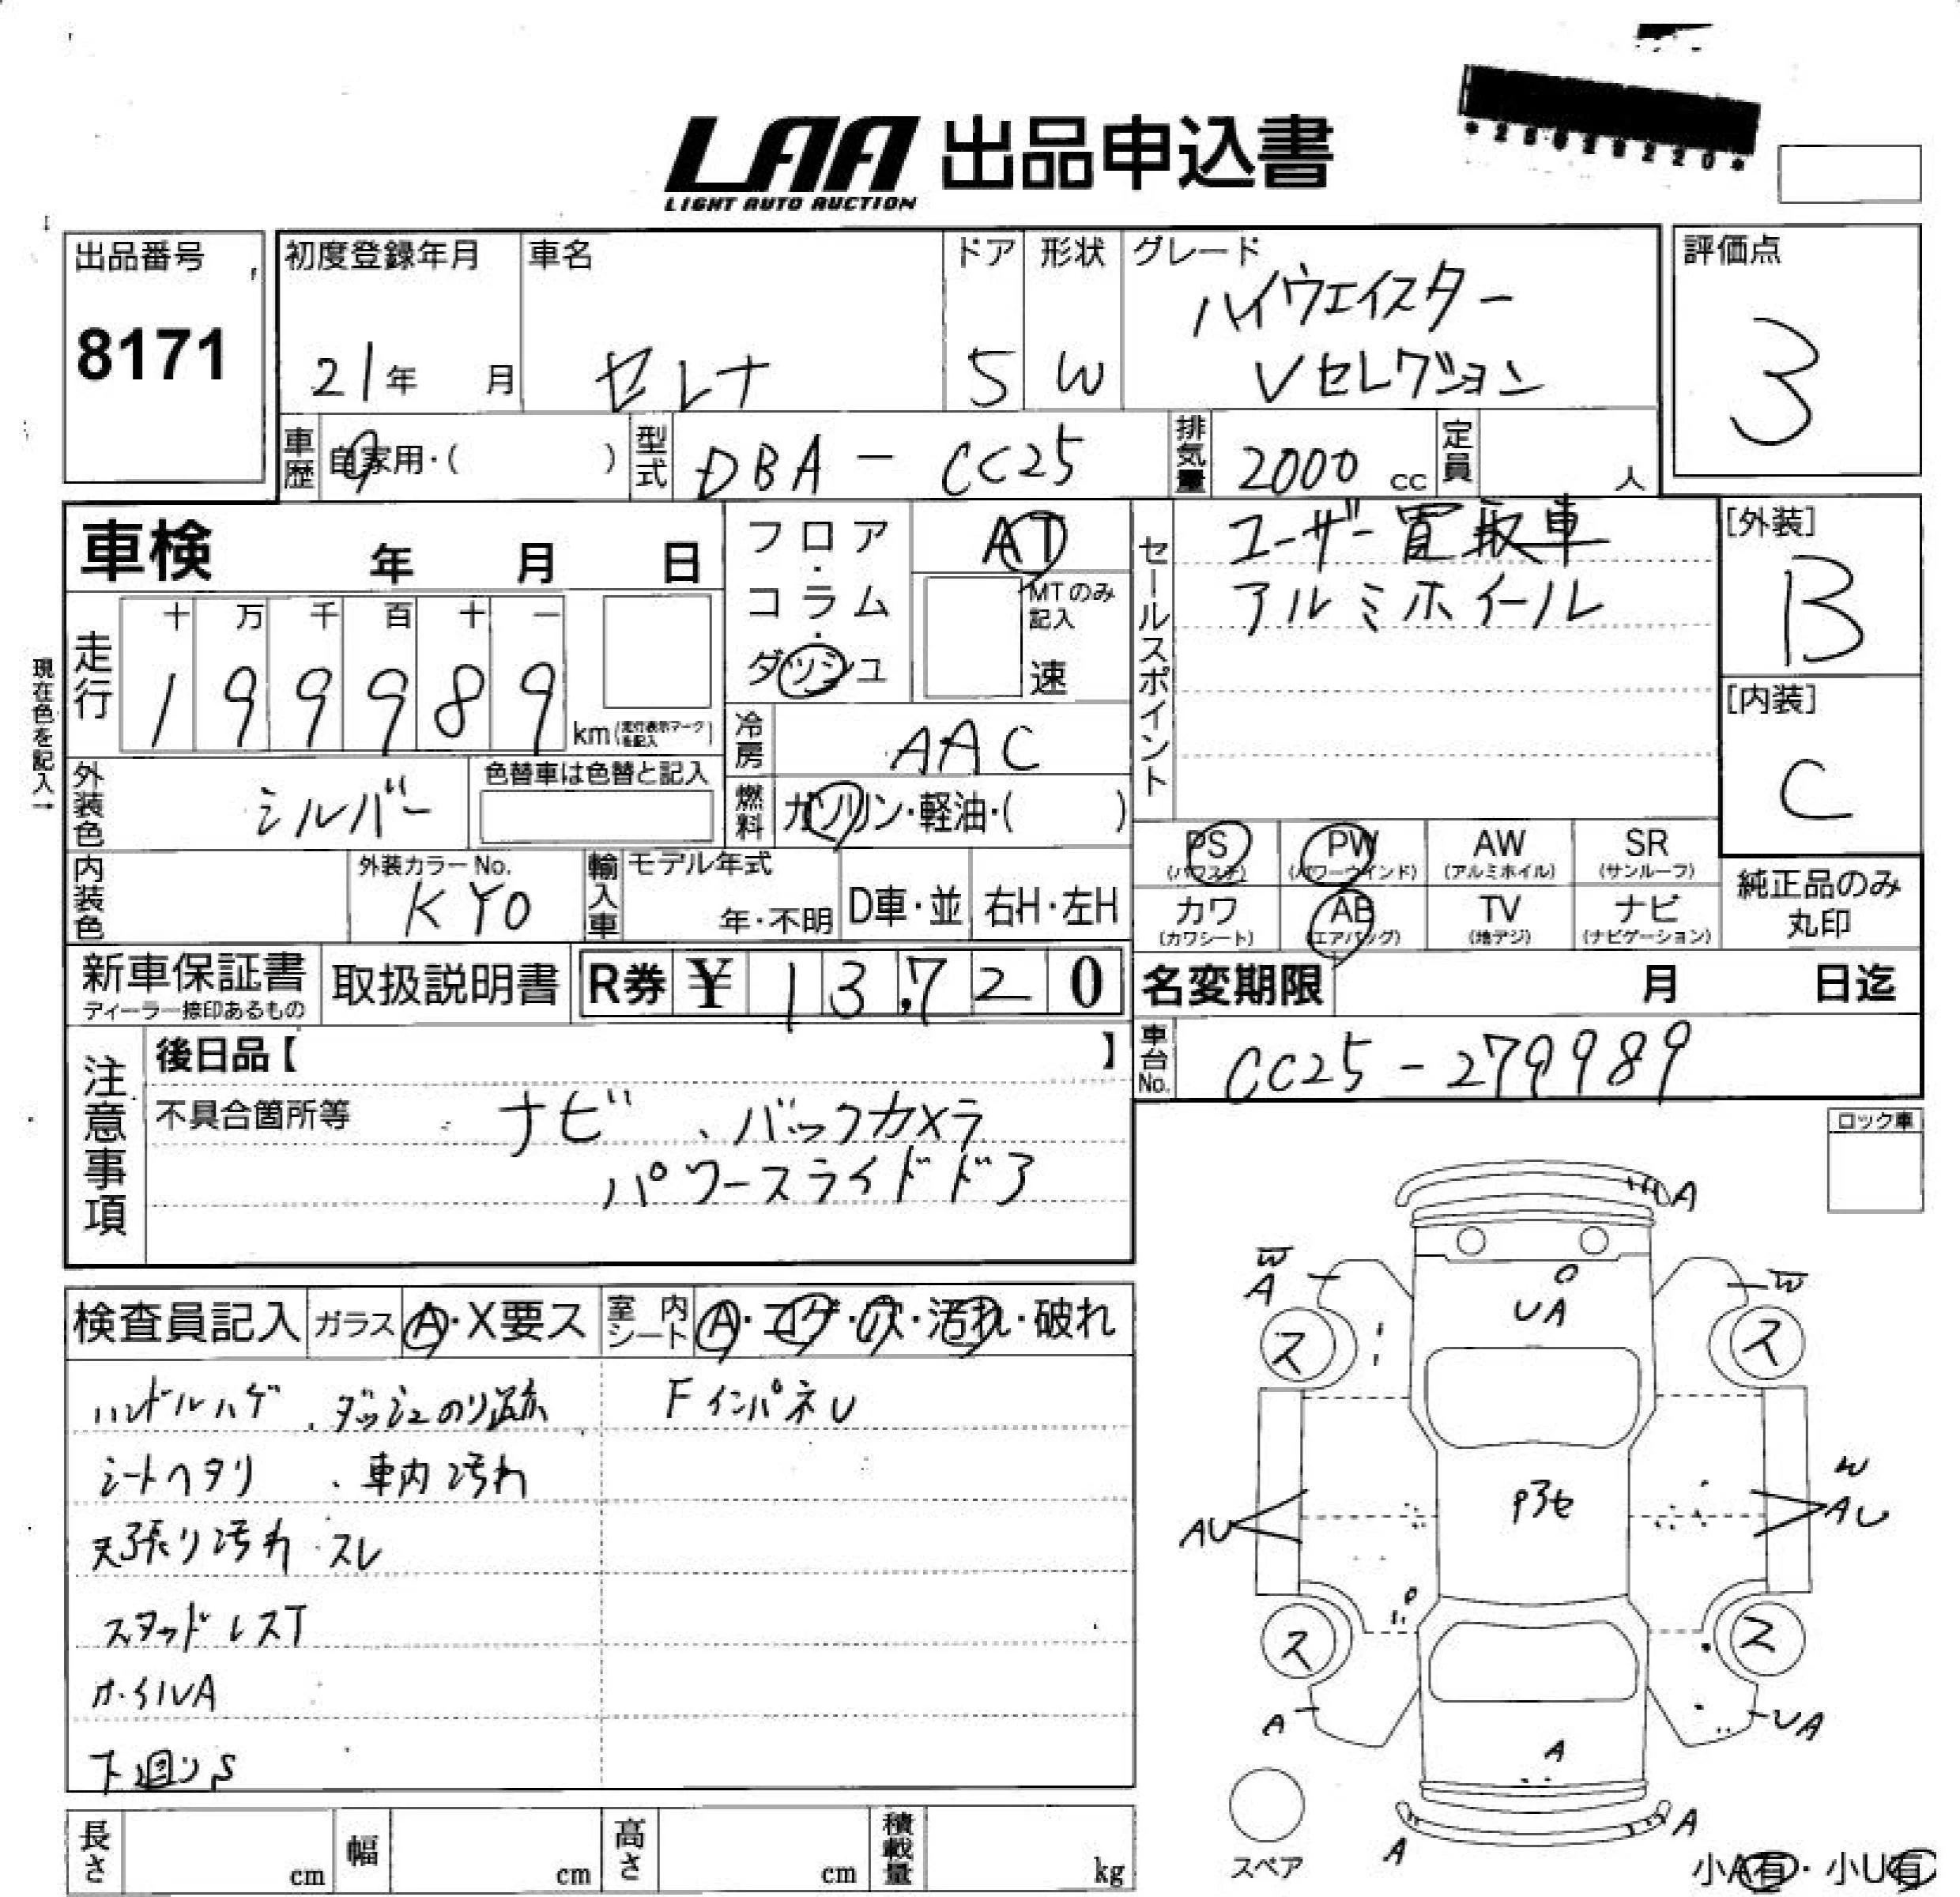 *25028220*
LAA 出品申込書
LIGHT AUTO AUCTION
出品番号
8171
初度登録年月
21年 月
車名
セレナ
ドア
5
形状
W
グレード
ハイウェイスター
Vセレクション
評価点
3
車歴
自家用・( )
型式
DBA - CC25
排気量
2000 cc
定員
人
車検 年 月 日
フロア・コラム・ダッシュ
AT
MTのみ記入
速
セールスポイント
ユーザー買取車
アルミホイール
[外装]
B
[内装]
C
現在色を記入→
走行
十 万 千 百 十 一
1 9 9 9 8 9
km(走行表示マークを記入)
冷房
AAC
外装色
シルバー
色替車は色替と記入
燃料
ガソリン・軽油・( )
内装色
外装カラーNo.
KY0
輸入車
モデル年式
年・不明
D車・並
右H・左H
PS
(パワステ)
PW
(パワーウインド)
AW
(アルミホイル)
SR
(サンルーフ)
カワ
(カワシート)
AB
(エアバッグ)
TV
(地デジ)
ナビ
(ナビゲーション)
純正品のみ
丸印
新車保証書
ディーラー捺印あるもの
取扱説明書
R券 ¥ 13,720
名変期限 月 日迄
車台No.
CC25-279989
注意事項
後日品【 】
不具合箇所等
ナビ、バックカメラ
パワースライドドア
ロック車
検査員記入
ガラス
A・X要ス
室内シート
A・コゲ・穴・汚れ・破れ
ハンドルハゲ、ダッシュのり跡
FインパネU
シートヘタリ、車内汚れ
天張り汚れ・スレ
スタッドレスT
ホイルA
下廻りS
A
W
A
W
UA
ス
ス
W
AU
AU
P3セ
P
ス
ス
A
UA
A
A
A
スペア
小A有・小U有
長さ
cm
幅
cm
高さ
cm
積載量
kg